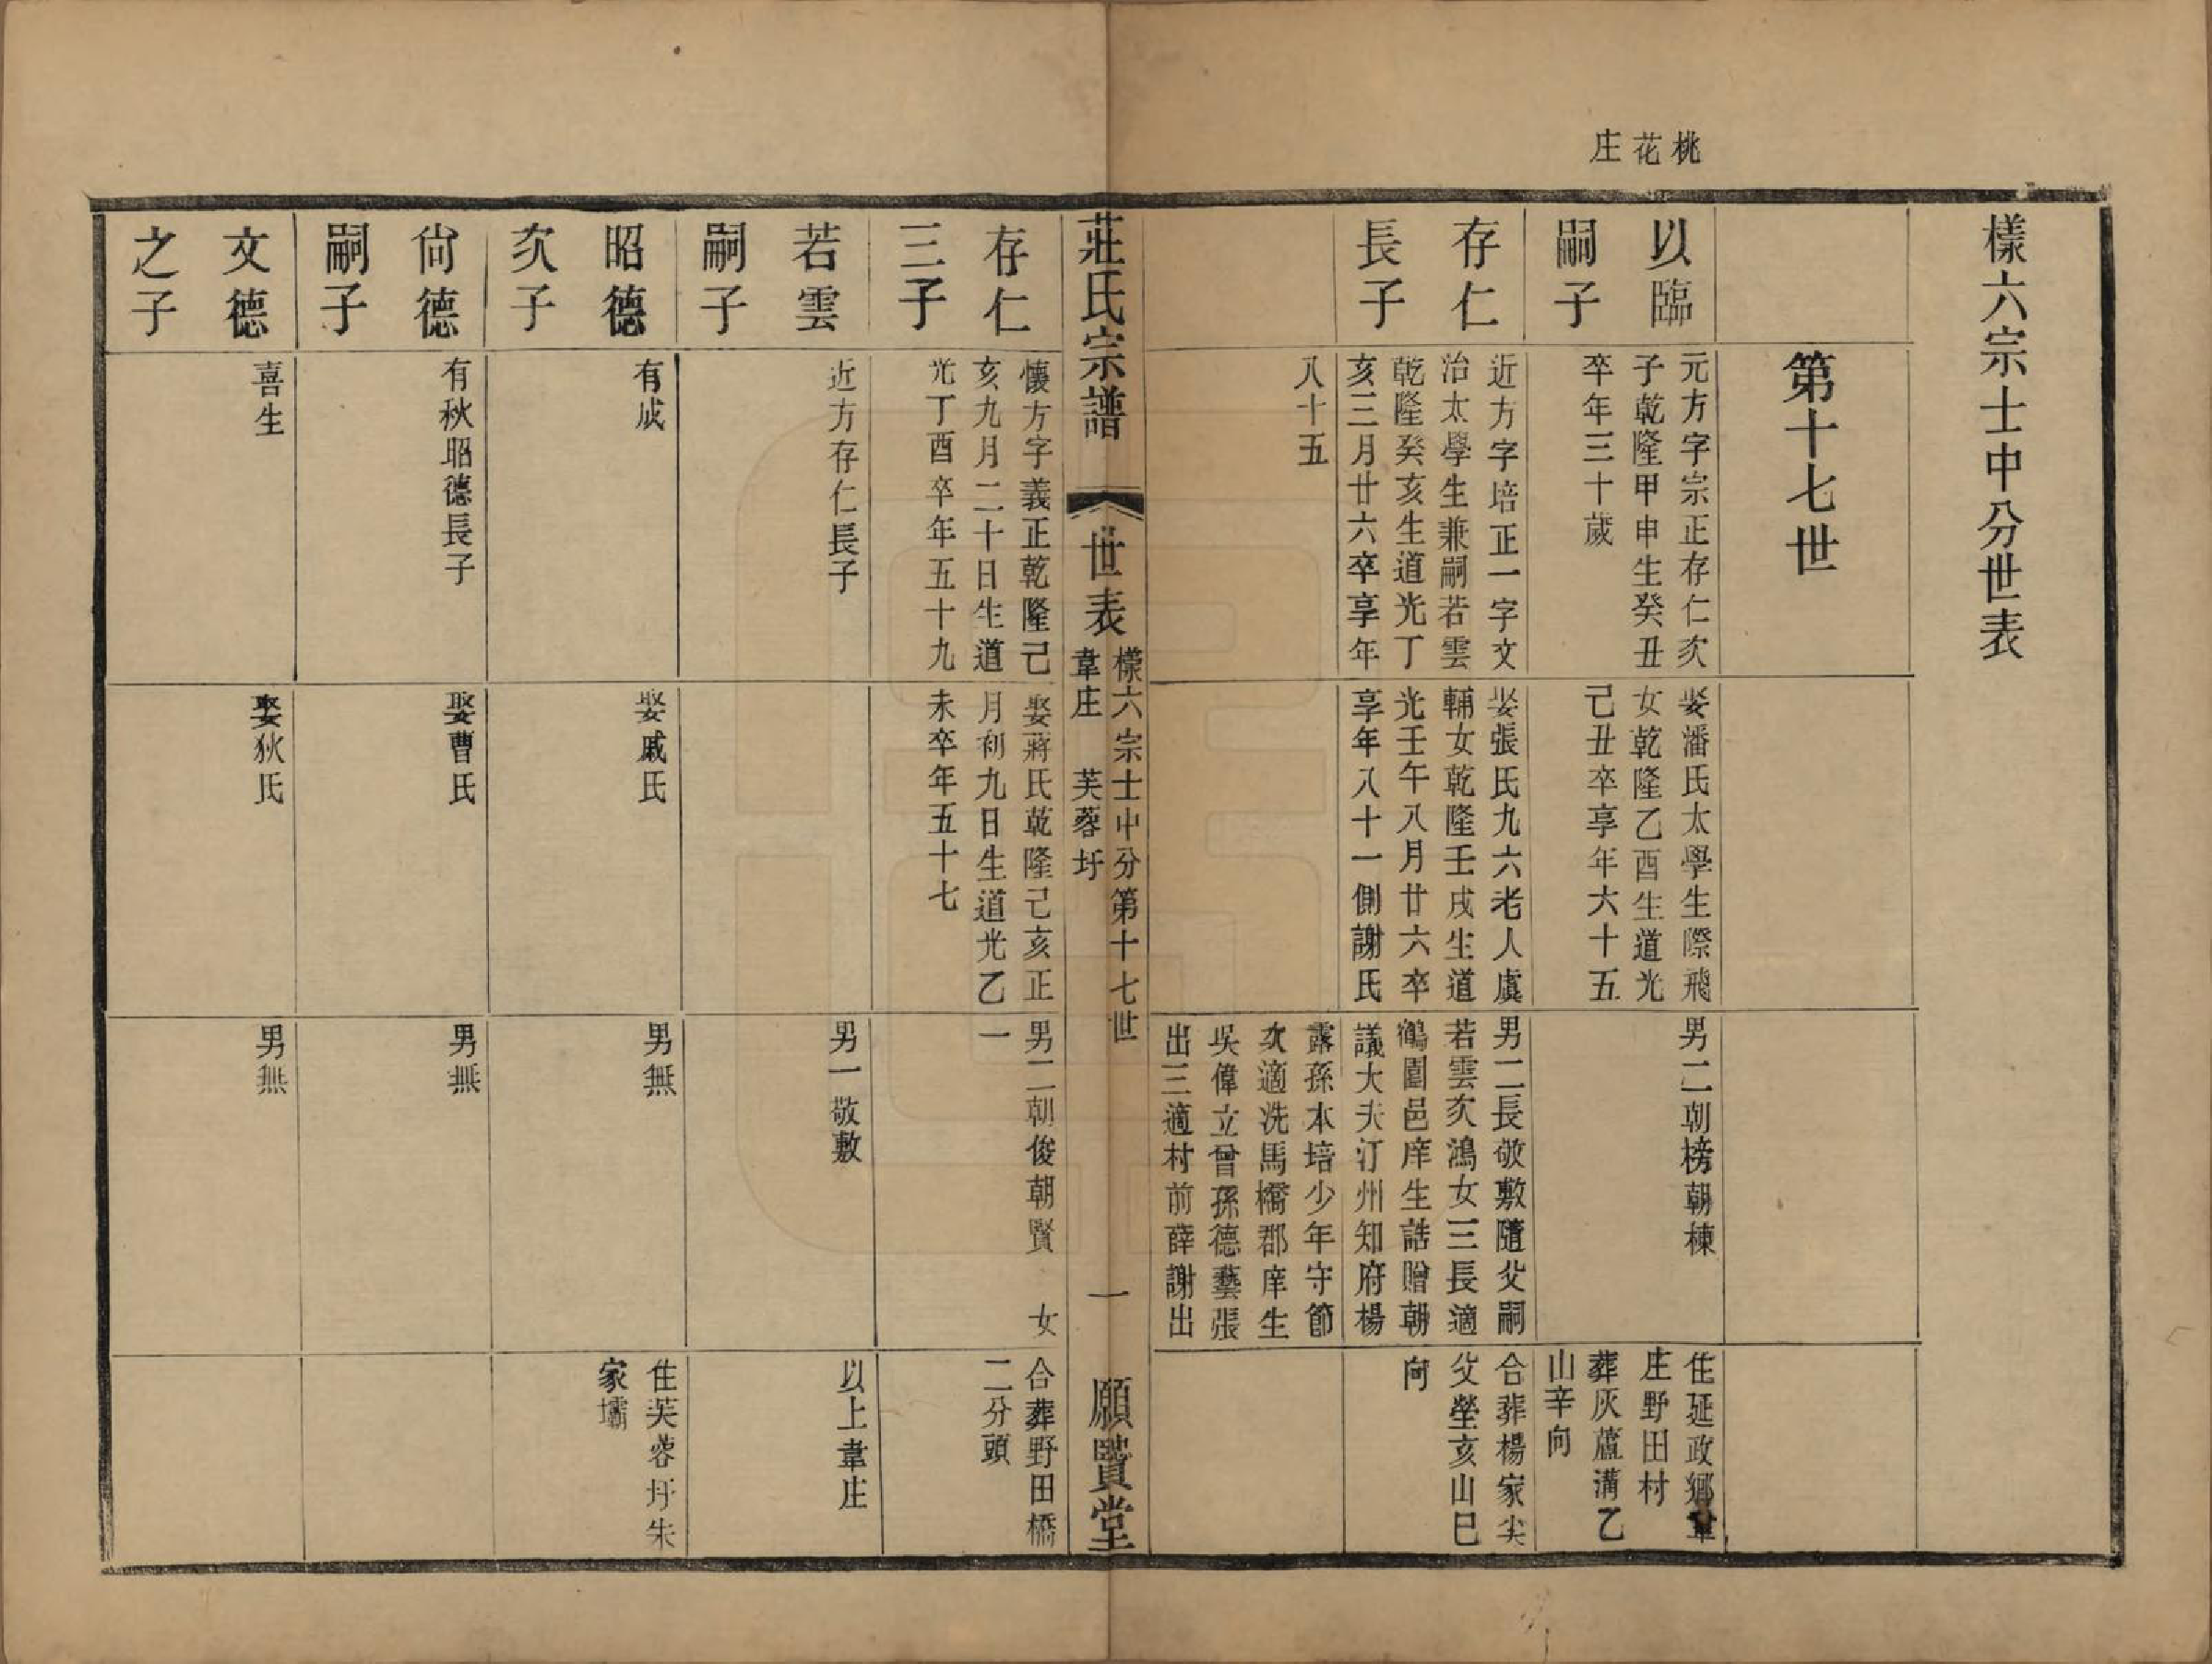 桃花庄
樣六宗士中分世表
第十七世
以臨
嗣子
元方字宗正存仁次
子乾隆甲申生癸丑
卒年三十歲
娶潘氏太學生際飛
女乾隆乙酉生道光
己丑卒享年六十五
男二朝榜朝棟
住延政鄉韋
庄野田村
葬灰蘆溝乙
山辛向
存仁
長子
近方字培正一字文
治太學生兼嗣若雲
乾隆癸亥生道光丁
亥三月廿六卒享年
八十五
娶張氏九六老人虞
輔女乾隆壬戌生道
光壬午八月廿六卒
享年八十一側謝氏
男二長敬敷隨父嗣
若雲次鴻女三長適
鶴園邑庠生誥贈朝
議大夫汀州知府楊
露孫本培少年守節
次適洗馬橋郡庠生
吳偉立曾孫德藝張
出三適村前薛謝出
合葬楊家尖
父塋亥山巳
向
莊氏宗譜
世表
樣六宗士中分第十七世
韋庄 芙蓉圩
一
願賢堂
存仁
三子
懷方字義正乾隆己
亥九月二十日生道
光丁酉卒年五十九
娶蔣氏乾隆己亥正
月初九日生道光乙
未卒年五十七
男二朝俊朝賢 女
一
合葬野田橋
二分頭
若雲
嗣子
近方存仁長子
男一敬敷
以上韋庄
昭德
次子
有成
娶戚氏
男無
住芙蓉圩朱
家壩
尚德
嗣子
有秋昭德長子
娶曹氏
男無
文德
之子
喜生
娶狄氏
男無